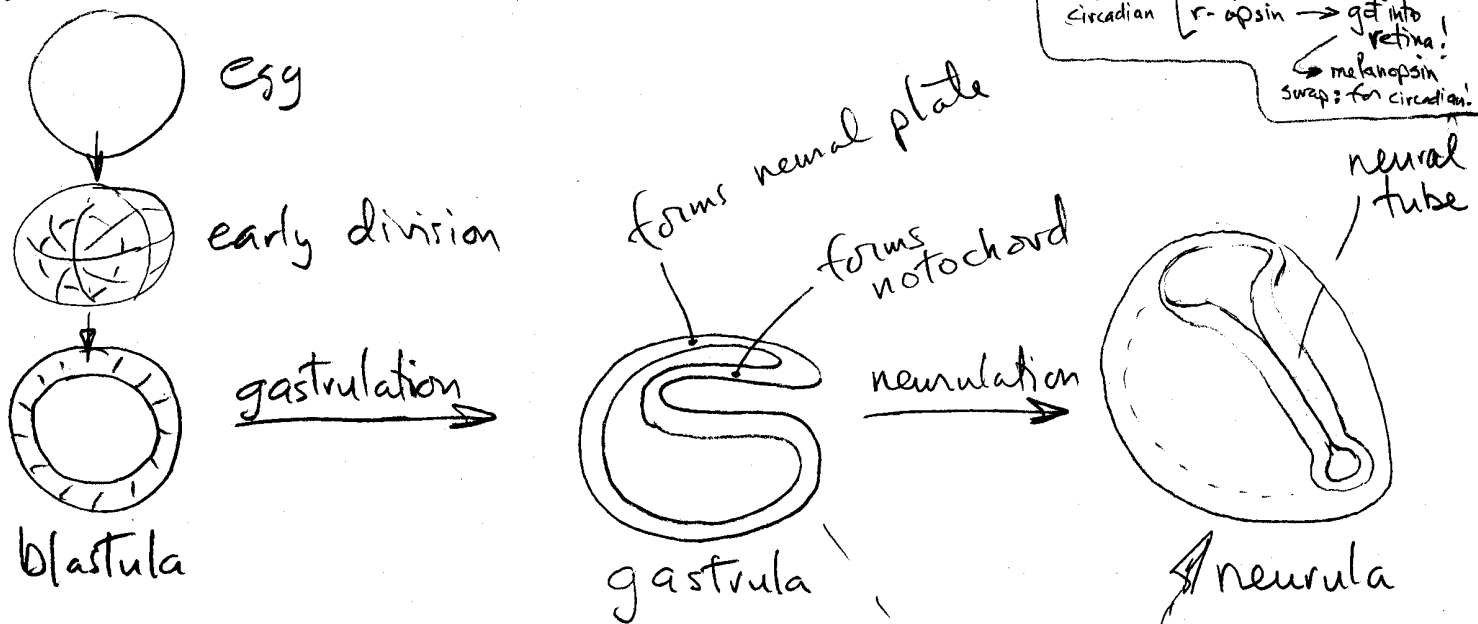 circadian [ r-opsin → get into
retina!
→ melanopsin
swap: for circadian!
egg
early division
blastula
gastrulation
forms neural plate
forms
notochord
gastrula
neurulation
neural
tube
neurula